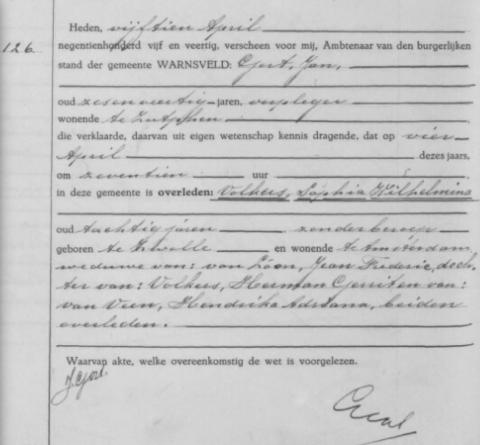 126.
Heden, vijftien April
negentienhonderd vijf en veertig, verscheen voor mij, Ambtenaar van den burgerlijken
stand der gemeente WARNSVELD: Gort, Jan,
oud zesenveertig jaren, verpleger
wonende te Zutphen
die verklaarde, daarvan uit eigen wetenschap kennis dragende, dat op vier
April dezes jaars,
om zeventien uur
in deze gemeente is overleden: Volkers, Sophia Wilhelmina
oud tachtig jaren zonder beroep
geboren te Zwolle en wonende te Amsterdam
weduwe van: van Loon, Jean Frederic, doch-
ter van: Volkers, Herman Gerrit en van:
van Veen, Hendrika Adriana, beiden
overleden.
Waarvan akte, welke overeenkomstig de wet is voorgelezen.
J. Gort.